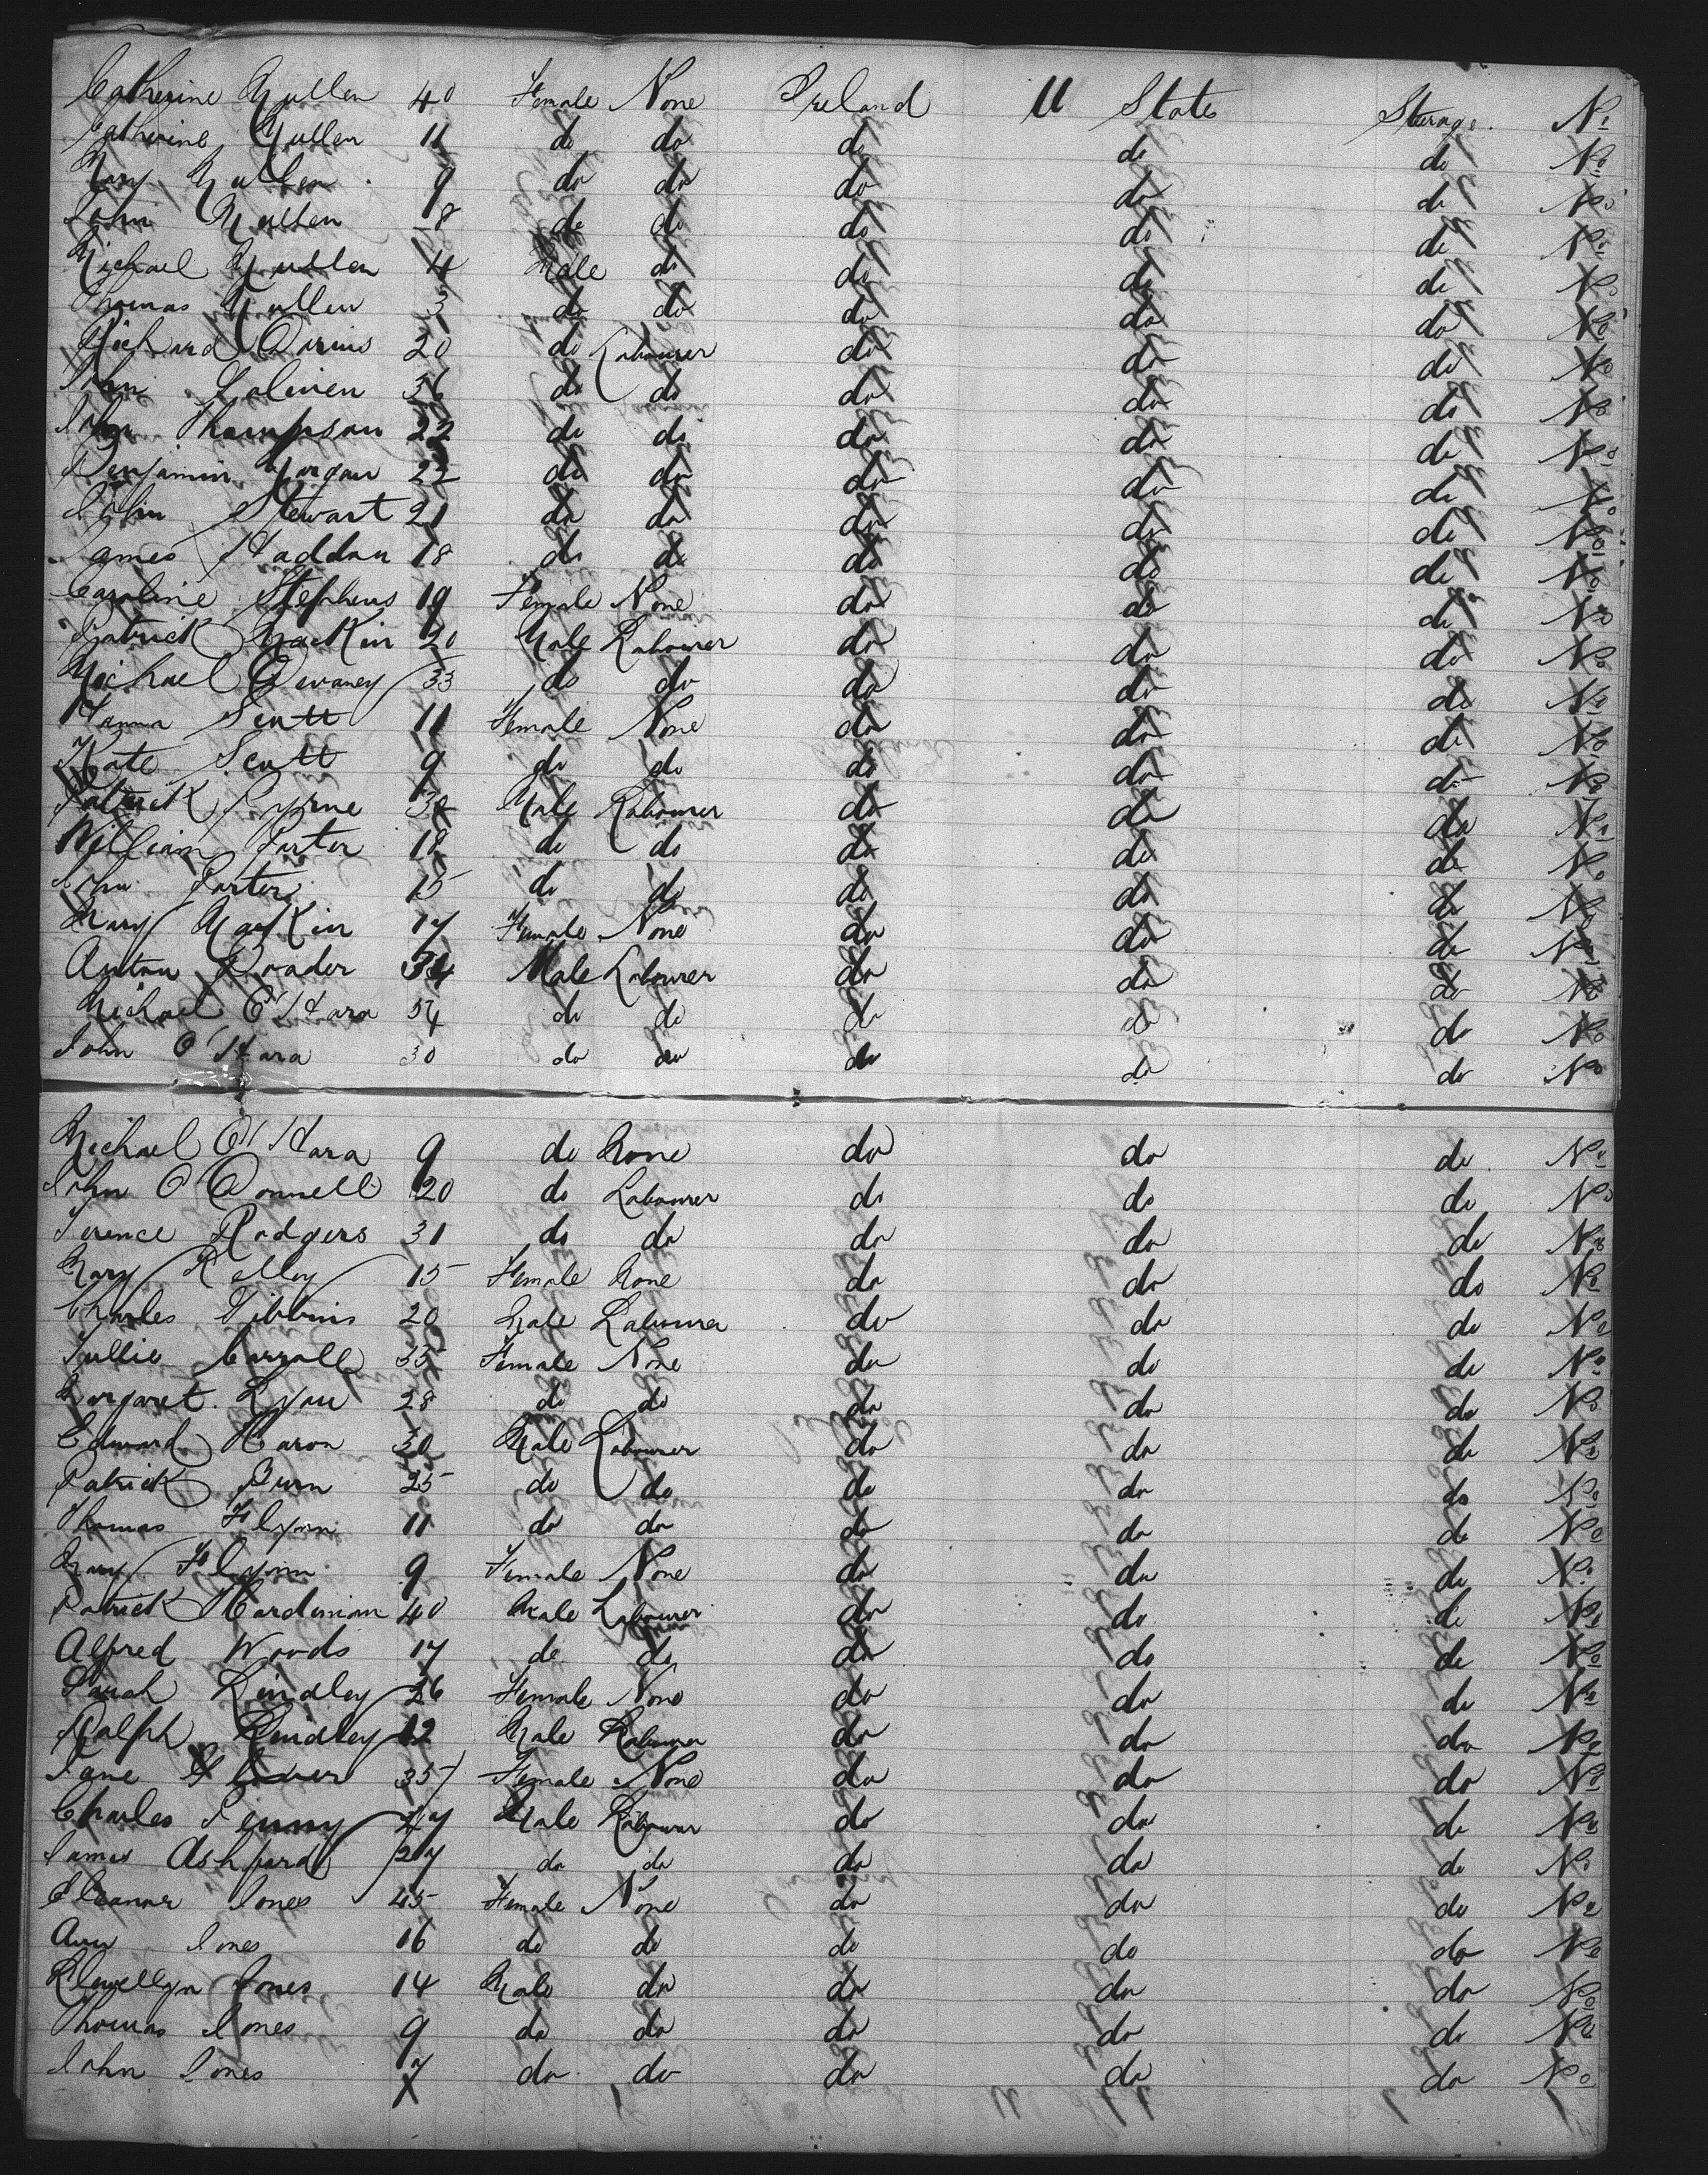 Catherine Mullen 40 Female None Ireland U States Steerage No
Catherine Mullen 11 do do do do do No
Mary Mullen 9 do do do do do No
John Mullen 8 do do do do do No
Michael Mullen 4 Male do do do do No
Thomas Mullen 3 do do do do do No
Richard 20 do Labourer do do do No
John 36 do do do do do No
John Thompson 22 do do do do do No
Benjamin Morgan 22 do do do do do No
John Stewart 21 do do do do do No
James Haddon 18 do do do do do No
Caroline Stephens 19 Female None do do do No
Patrick Mackin 20 Male Labourer do do do No
Michael Devaney 33 do do do do do No
Hanna Scott 11 Female None do do do No
Kate Scott 9 do do do do do No
Patrick Byrne Male Labourer do do do No
William Porter 18 do do do do do No
John Porter 15 do do do do do No
Mary Mackin 17 Female None do do do No
Anton 34 Male Labourer do do do No
Michael O'Hara 54 do do do do do No
John O'Hara 30 do do do do do No
Michael O'Hara 9 do None do do do No
John O Donnell 20 do Labourer do do do No
Terence Rodgers 31 do do do do do No
Mary Kelley 15 Female None do do do No
Charles Gibbins 20 Male Labourer do do do No
Julie Carroll 35 Female None do do do No
Margaret Ryan 28 do do do do do No
Edward Haron 30 Male Labourer do do do No
Patrick Burn 25 do do do do do No
Thomas Flynn 11 do do do do do No
Mary Flynn 9 Female None do do do No
Patrick Hardiman 40 Male Labourer do do do No
Alfred Woods 17 do do do do do No
Sarah Lindley 26 Female None do do do No
Ralph Lindley 12 Male Labourer do do do No
Jane 35 Female None do do do No
Charles Penny 27 Male Labourer do do do No
James Ashford 27 do do do do do No
Eleanor Jones 45 Female None do do do No
Ann Jones 16 do do do do do No
Llewellyn Jones 14 Male do do do do No
Thomas Jones 9 do do do do do No
John Jones 7 do do do do do No